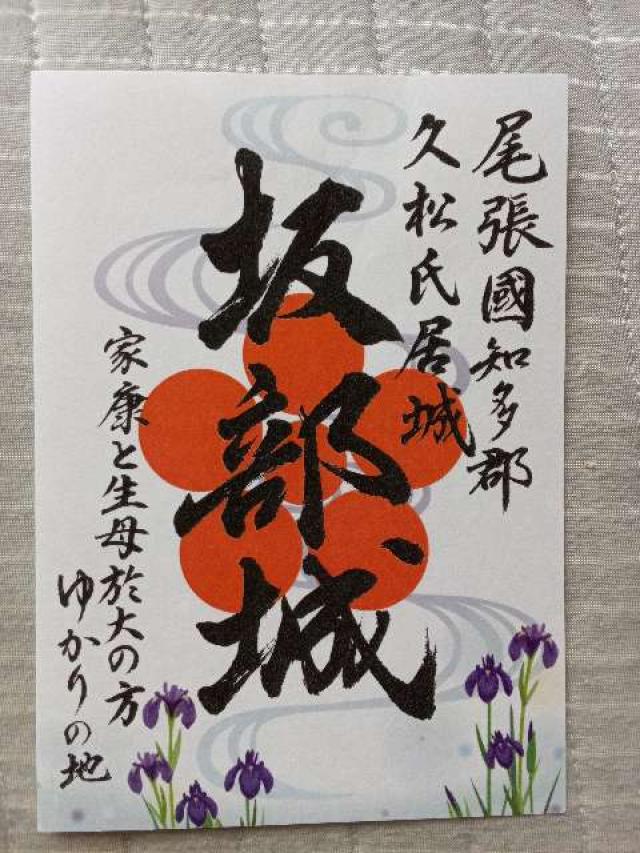 尾張國知多郡
久松氏居城
坂部城
家康と生母於大の方
ゆかりの地